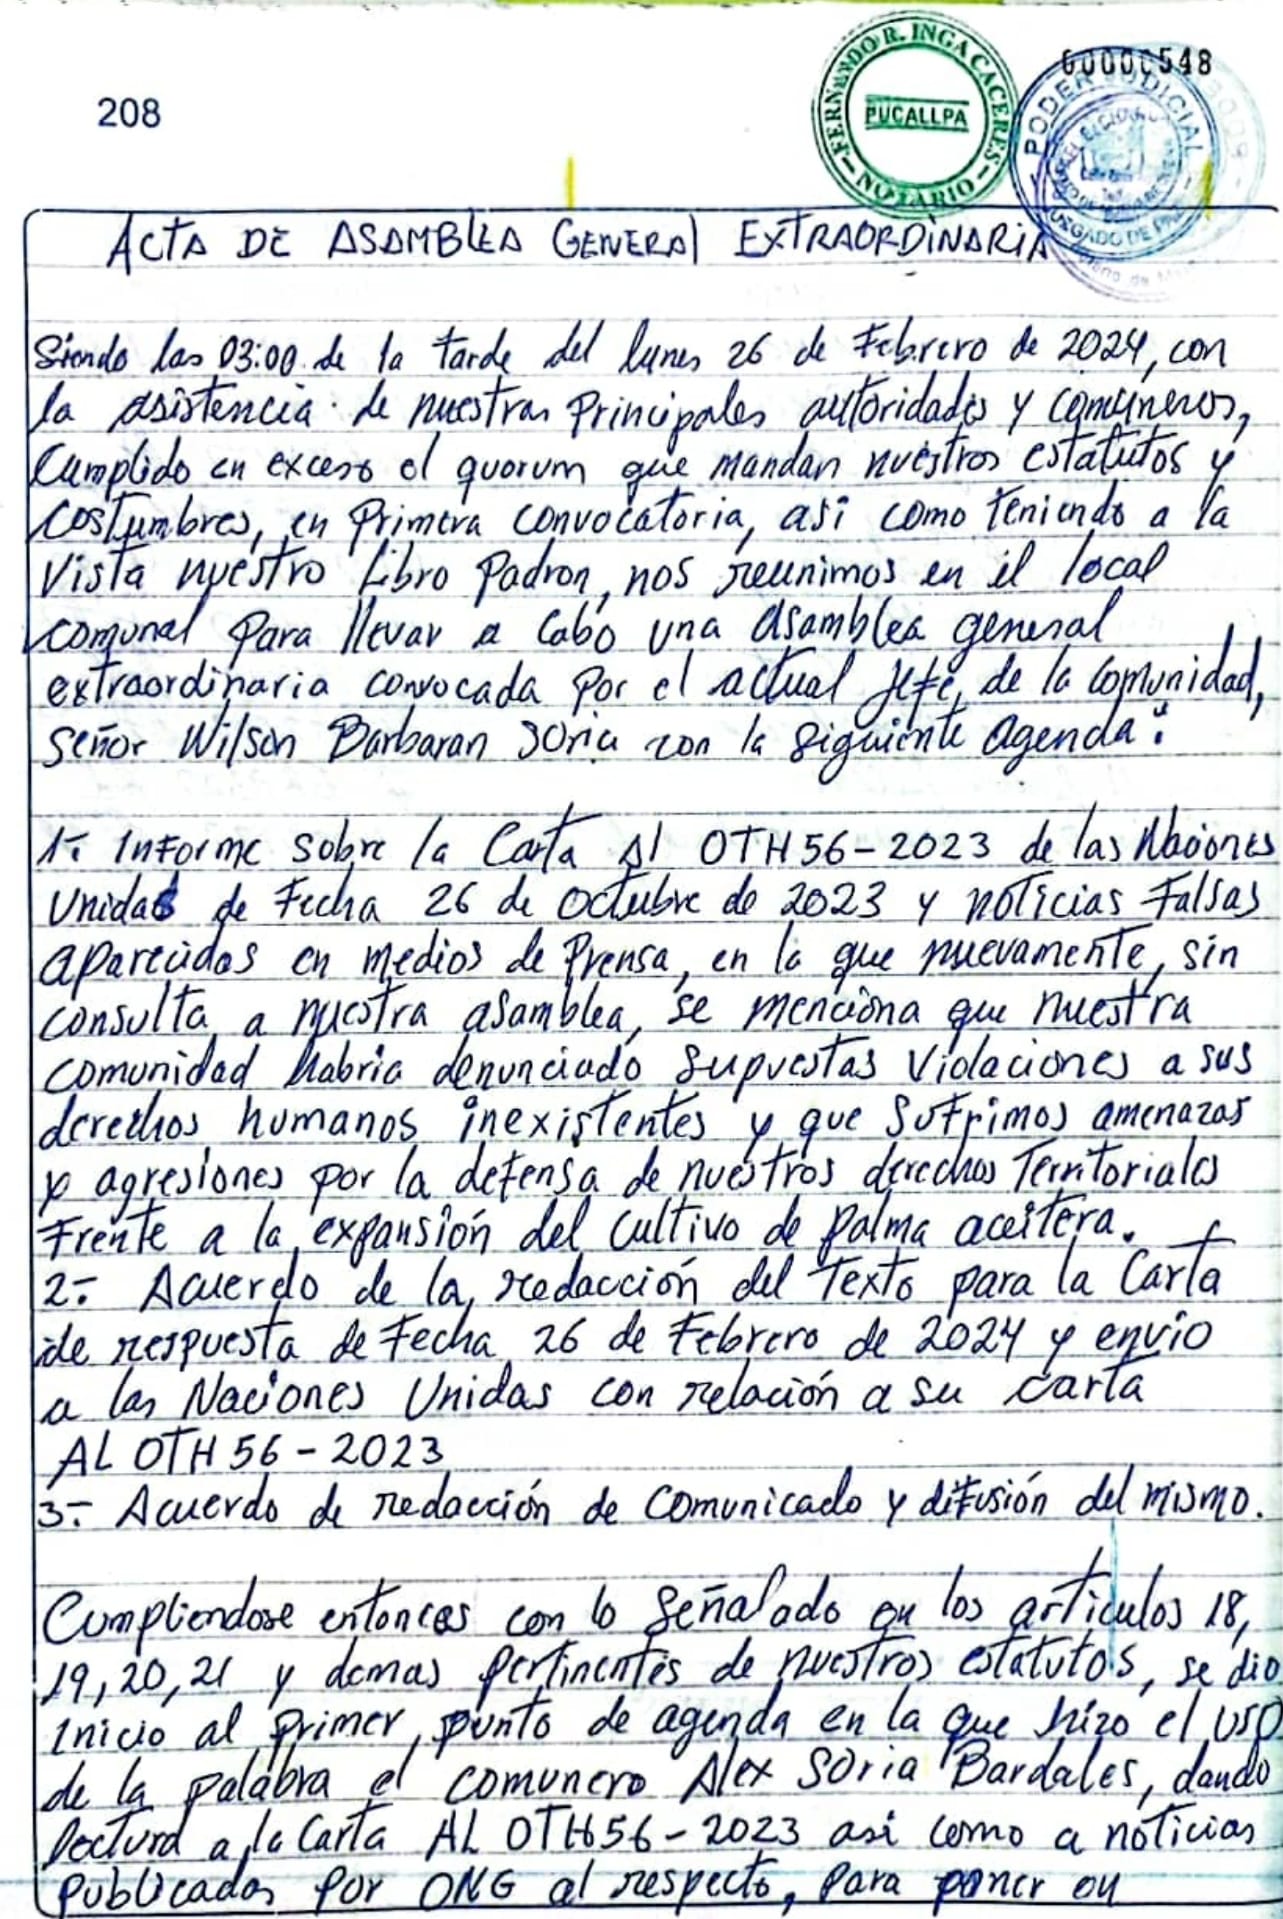 00000548
208
FERNANDO R. INGA CACERES
PUCALLPA
NOTARIO
PODER JUDICIAL
JUZGADO DE
ACTA DE ASAMBLEA GENERAL EXTRAORDINARIA
Siendo las 03:00 de la tarde del lunes 26 de Febrero de 2024, con
la asistencia de nuestras Principales autoridades y comuneros,
Cumplido en exceso el quorum que mandan nuestros estatutos y
costumbres, en Primera convocatoria, asi como teniendo a la
Vista nuestro Libro Padron, nos reunimos en el local
comunal para llevar a Cabo una Asamblea general
extraordinaria convocada por el actual Jefe, de la comunidad,
señor Wilson Barbaran Soria con la siguiente agenda:
1.- Informe sobre la Carta Al OTH 56-2023 de las Naciones
Unidas de Fecha 26 de octubre de 2023 y noticias Falsas
aparecidas en medios de Prensa, en la que nuevamente, sin
consulta a nuestra asamblea, se menciona que nuestra
comunidad habria denunciado supuestas violaciones a sus
derechos humanos inexistentes y que sufrimos amenazas
y agresiones por la defensa de nuestros derechos Territoriales
Frente a la expansión del cultivo de palma aceitera.
2.- Acuerdo de la redacción del Texto para la Carta
de respuesta de Fecha 26 de Febrero de 2024 y envio
a las Naciones Unidas con relación a su carta
AL OTH 56-2023
3.- Acuerdo de redacción de comunicado y difusión del mismo.
Cumpliendose entonces con lo señalado en los articulos 18,
19, 20, 21 y demas pertinentes de nuestros estatutos, se dio
inicio al primer punto de agenda en la que hizo el uso
de la palabra el comunero Alex Soria Bardales, dando
lectura a la Carta AL OTH 56-2023 asi como a noticias
publicadas por ONG al respecto, para poner en